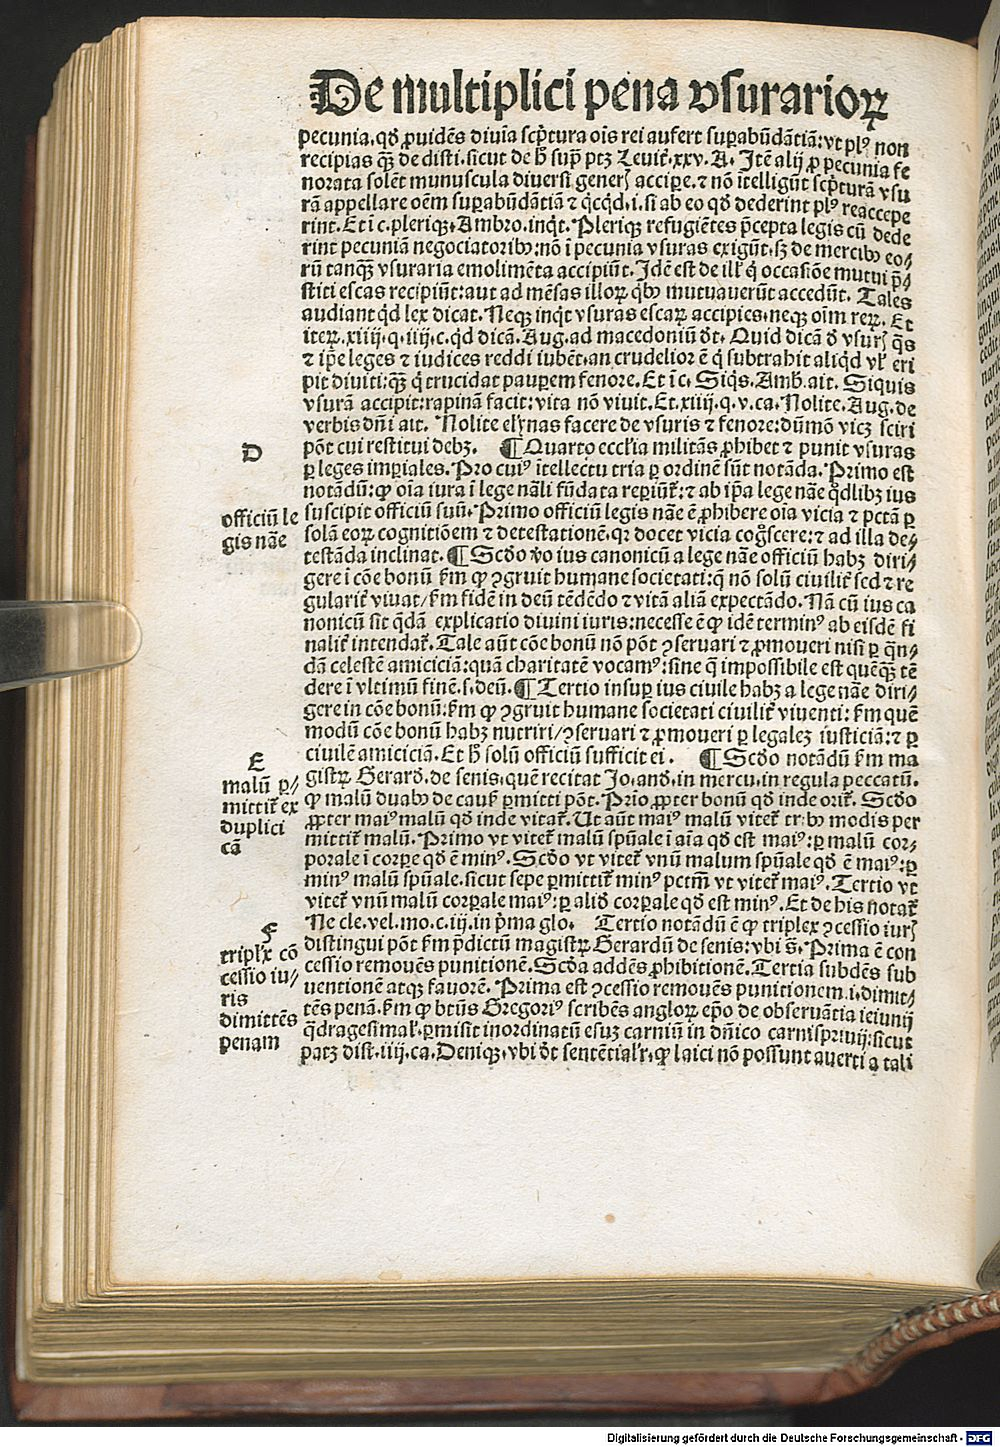 De multiplici pena vsurarioꝝ
pecunia. qđ ꝓuidēs diuīa scp̄tura oīs rei aufert suꝑabūdātiā: vt plꝰ non
recipias qꝫ̄ de disti. sicut de h̄ sup̄ ptꝫ Leuit̄. xxv. A. Itē alij ꝓ pecunia fe
norata solēt munuscula diuersi generꝭ accipe. ⁊ nō ītelligūt scp̄turā vsu
rā appellare oēm suꝑabūdātiā ⁊ qcqd. i. si ab eo qđ dederint plꝰ reaccepe
rint. Et ī c. pleriqꝫ. Ambro. inqt. Pleriqꝫ refugiētes p̄cepta legis cū dede
rint pecuniā negociatoribꝰ: nō ī pecunia vsuras exigūt. sꝫ de mercibꝰ eo⸗
rū tanqꝫ̄ vsuraria emolimēta accipiūt. Idē est de ill̄ q̇ occasiōe mutui p̄⸗
stiti escas recipiūt: aut ad mēsas illoꝝ qbꝰ mutuauerūt accedūt. Tales
audiant qd lex dicat. Neqꝫ inqt vsuras escaꝝ accipies. neqꝫ oīm reꝝ. Et
iteꝝ. xiiij. q. iiij. c. qd dicā. Aug. ad macedoniū dt̄. Quid dicā đ vsurꝭ q̄s
⁊ ip̄e leges ⁊ iudices reddi iubēt. an crudelior ē q̇ subtrahit aliqd vl̄ eri
pit diuiti: qꝫ̄ q̇ trucidat pauꝑem fenore. Et ī c. Siqs. Amb. ait. Siquis
vsurā accipit: rapinā facit: vita nō viuit. Et. xiiij. q. v. ca. Nolite. Aug. de
verbis dn̄i ait. Nolite elꝭnas facere de vsuris ⁊ fenore: dūmō vicꝫ sciri
pōt cui restitui debꝫ. ¶ Quarto eccl̄ia militās ꝓhibet ⁊ punit vsuras
D
ꝑ leges imꝑiales. Pro cuiꝰ ītellectu tria ꝑ ordinē sūt notāda. Primo est
notādū: ꝙ oīa iura ī lege nāli fūdata reꝑiūt̄: ⁊ ab ip̄a lege nāe qdlibꝫ ius
officiū le
gis nāe
suscipit officiū suū. Primo officiū legis nāe ē ꝓhibere oīa vicia ⁊ pctā ꝑ
solā eoꝝ cognitiōem ⁊ detestationē. qꝛ docet vicia cogͦscere: ⁊ ad illa de⸗
testāda inclinat. ¶ Scđo ꝟo ius canonicū a lege nāe officiū habꝫ diri⸗
gere ī cōe bonū ẜm ꝙ ꝯgruit humane societati: q̇ nō solū ciuilit̄ sed ⁊ re
gularit̄ viuat / ẜm fidē in deū tēdēdo ⁊ vitā aliā expectādo. Nā cū ius ca
nonicū sit qdā explicatio diuini iuris: necesse ē ꝙ idē terminꝰ ab eisdē fi
nalit̄ intendat̄. Tale aūt cōe bonū nō pōt ꝯseruari ⁊ ꝓmoueri nisi ꝑ qn̄⸗
dā celestē amiciciā: quā charitatē vocamꝰ: sine q̄ impossibile est quēqꝫ̄ tē
dere ī vltimū finē. s. deū. ¶ Tertio insuꝑ ius ciuile habꝫ a lege nāe diri⸗
gere in cōe bonū: ẜm ꝙ ꝯgruit humane societati ciuilit̄ viuenti: ẜm quē
modū cōe bonū habꝫ nutriri / ꝯseruari ⁊ ꝓmoueri ꝑ legalēꝫ iusticiā: ⁊ ꝑ
ciuilē amiciciā. Et h̄ solū officiū sufficit ei. ¶ Scđo notādū ẜm ma
E
malū ꝑ⸗
mittit̄ ex
duplici
cā
gistꝝ Gerarđ. de senis. quē recitat Jo. anđ. in mercu. in regula peccatū.
ꝙ malū duabꝰ de causꝭ ꝑmitti pōt. Prīo ꝓpter bonū qđ inde orit̄. Scđo
ꝓpter maiꝰ malū qđ inde vitat̄. Ut aūt maiꝰ malū vitet̄ tribꝰ modis per
mittit̄ malū. Primo vt vitet̄ malū spūale ī aīa qđ est maiꝰ: ꝑ malū cor⸗
porale ī corpe qđ ē minꝰ. Scđo vt vitet̄ vnū malum spūale qđ ē maiꝰ: ꝑ
minꝰ malū spūale. sicut sepe ꝑmittit̄ minꝰ pctm̄ vt vitet̄ maiꝰ. Tertio vt
vitet̄ vnū malū corꝑale maiꝰ: ꝑ aliđ corꝑale qđ est minꝰ. Et de his notat̄
Ne cle. vel. mo. c. iij. in p̄ma glo. Tertio notādū ē ꝙ triplex ꝯcessio iurꝭ
F
triplx̄ cō
cessio iu⸗
ris
dimittēs
penam
distingui pōt ẜm p̄dictū magistꝝ Gerardū de senis: vbi s̄. Prima ē con
cessio remouēs punitionē. Scđa addēs ꝓhibitionē. Tertia subdēs sub
uentionē atqꝫ fauorē. Prima est ꝯcessio remouēs punitionem. i. dimit⸗
tēs penā. ẜm ꝙ btūs Gregoriꝰ scribēs angloꝝ ep̄o de obseruātia ieiunij
q̄dragesimal̄. ꝑmisit inordinatū esuꝫ carniū in dn̄ico carnispriuij: sicut
patꝫ dist. iiij. ca. Deniqꝫ. vbi dt̄ sentētialr̄. ꝙ laici nō possunt auerti a tali
Digitalisierung gefördert durch die Deutsche Forschungsgemeinschaft - DFG